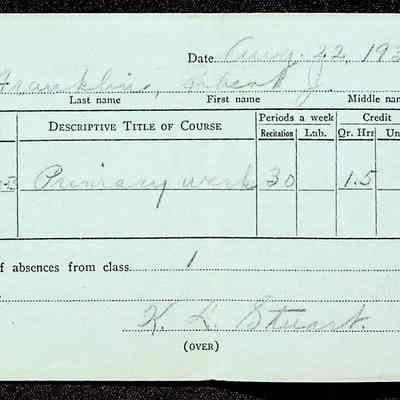 Date Aug. 22, 193
Franklin, Robert J.
Last name First name Middle nam
DESCRIPTIVE TITLE OF COURSE Periods a week Credit
Recitation Lab. Qr. Hrs Un
-B Primary work 30 1.5
f absences from class 1
K. L. Stuart.
(OVER)